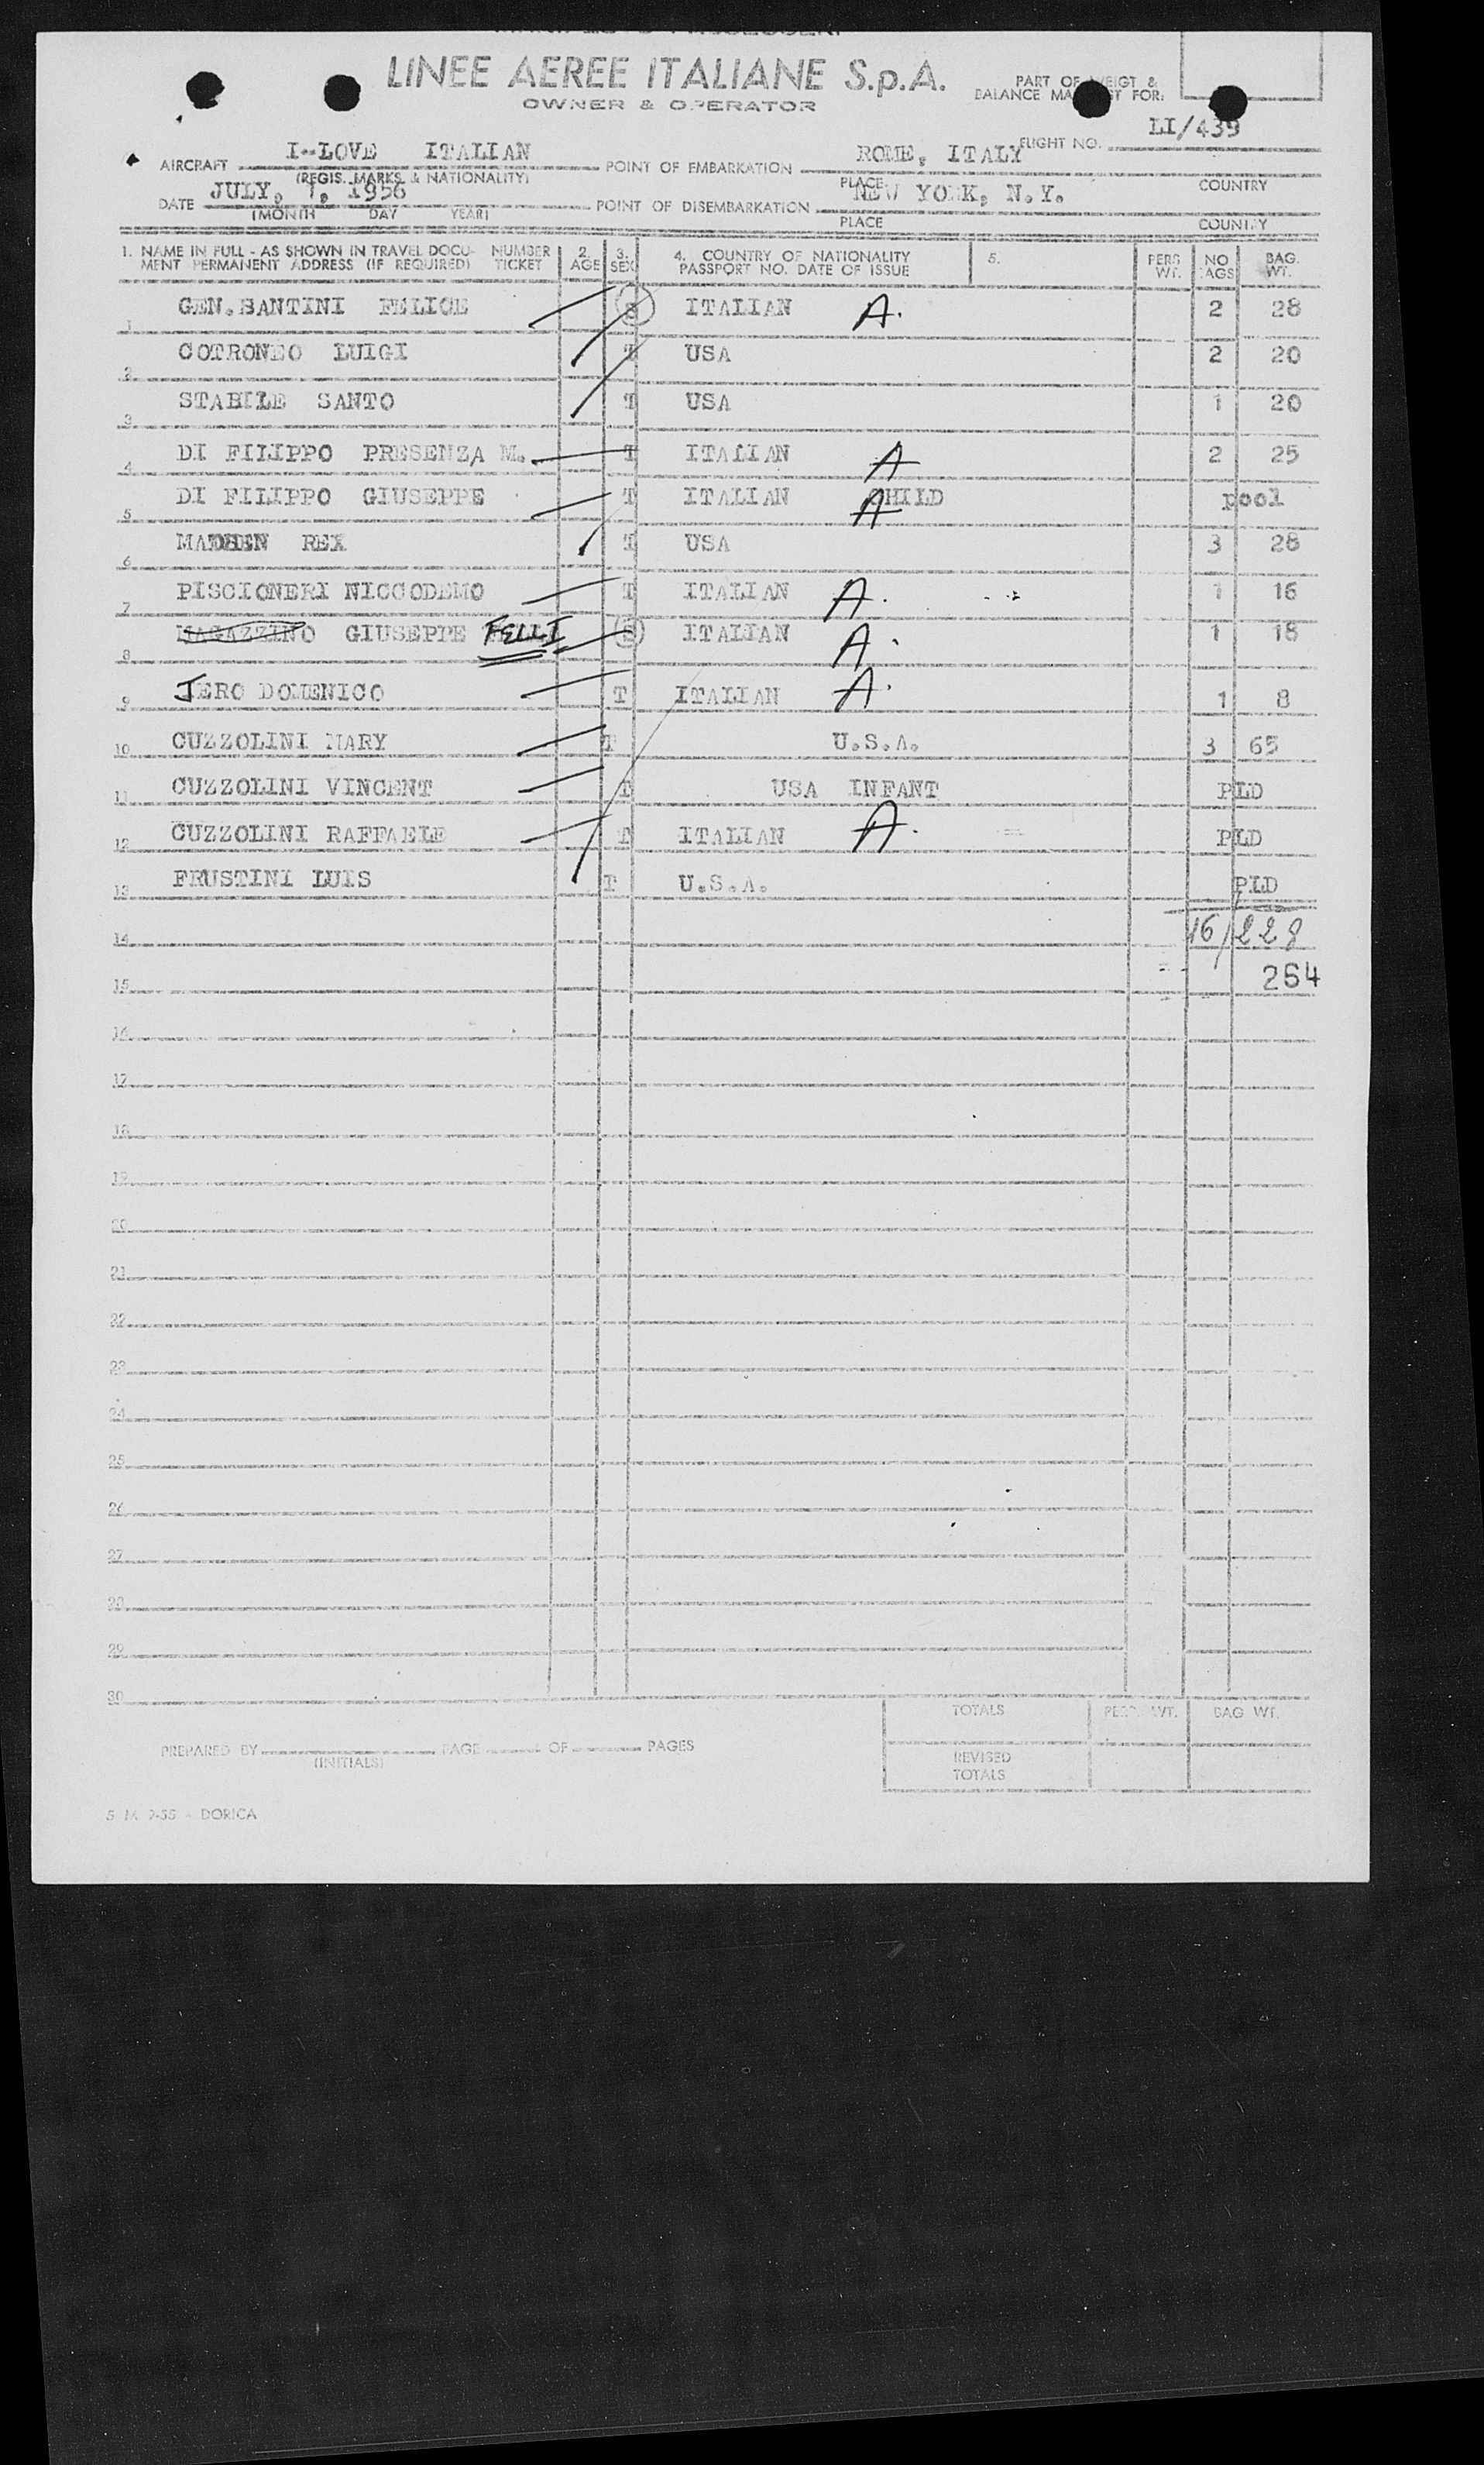 LINEE AEREE ITALIANE S.p.A.
OWNER & OPERATOR
PART OF WEIGT &
BALANCE MANIFEST FOR:
FLIGHT NO. LI/439
AIRCRAFT I-LOVE ITALIAN POINT OF EMBARKATION ROME, ITALY
(REGIS. MARKS & NATIONALITY) PLACE COUNTRY
DATE JULY, 7, 1956 POINT OF DISEMBARKATION NEW YORK, N.Y.
(MONTH DAY YEAR) PLACE COUNTRY
1. NAME IN FULL - AS SHOWN IN TRAVEL DOCU- NUMBER 2. 3. 4. COUNTRY OF NATIONALITY 5. PERS. NO BAG.
MENT PERMANENT ADDRESS (IF REQUIRED) TICKET AGE SEX PASSPORT NO. DATE OF ISSUE WT. BAGS WT.
1 GEN.SANTINI FELICE S ITALIAN A. 2 28
2 COTRONEO LUIGI T USA 2 20
3 STABILE SANTO T USA 1 20
4 DI FILIPPO PRESENZA M. T ITALIAN A 2 25
5 DI FILIPPO GIUSEPPE T ITALIAN CHILD A pool
6 REX T USA 3 28
7 PISCIONERI NICCODEMO T ITALIAN A. 1 16
8 MAGAZZINO GIUSEPPE FELLI S ITALIAN A. 1 18
9 JERO DOMENICO T ITALIAN A. 1 8
10 CUZZOLINI MARY T U.S.A. 3 65
11 CUZZOLINI VINCENT T USA INFANT PLD
12 CUZZOLINI RAFFAELE T ITALIAN A. PLD
13 FRUSTINI LUIS T U.S.A. PLD
14 16/228
15 264
16
17
18
19
20
21
22
23
24
25
26
27
28
29
30
TOTALS PERS. WT. BAG WT.
PREPARED BY PAGE OF PAGES
(INITIALS)
REVISED
TOTALS
5 M 9-55 - DORICA